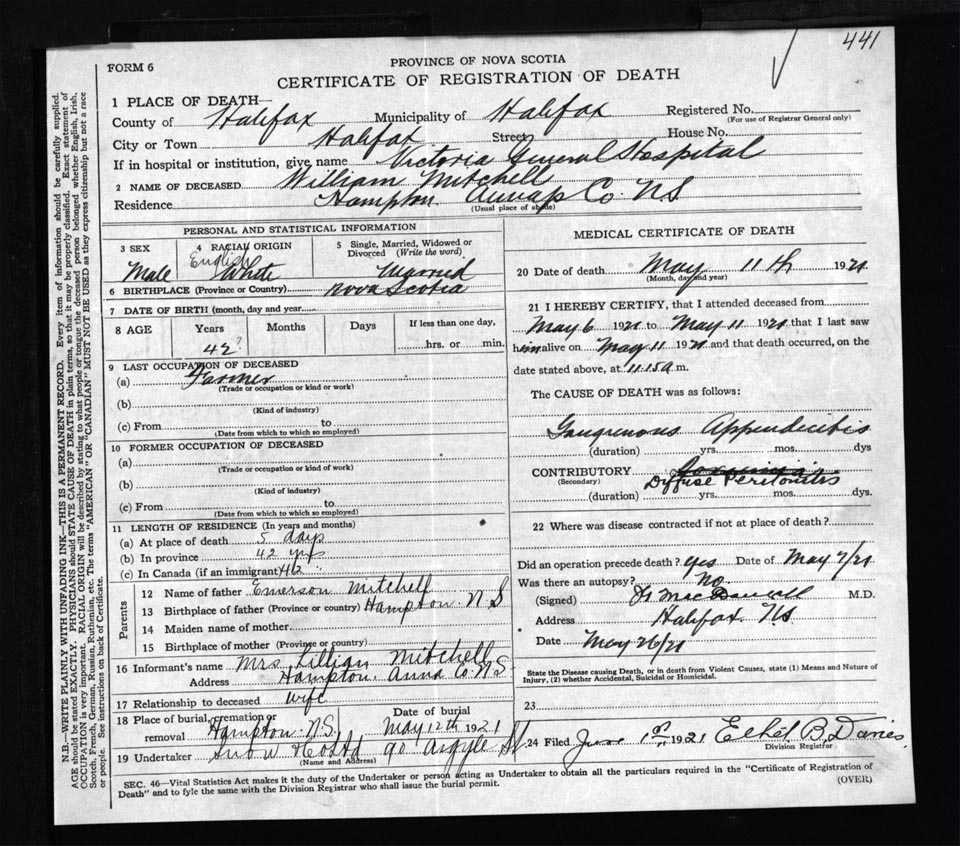 441
FORM 6
PROVINCE OF NOVA SCOTIA
CERTIFICATE OF REGISTRATION OF DEATH
1 PLACE OF DEATH—
County of Halifax Municipality of Halifax Registered No.
(For use of Registrar General only)
City or Town Halifax Street House No.
If in hospital or institution, give name Victoria General Hospital
2 NAME OF DECEASED William Mitchell
Residence Hampton Annap Co. N S
(Usual place of abode)
PERSONAL AND STATISTICAL INFORMATION
3 SEX 4 RACIAL ORIGIN 5 Single, Married, Widowed or Divorced (Write the word)
Male English White Married
6 BIRTHPLACE (Province or Country) Nova Scotia
7 DATE OF BIRTH (month, day and year)
8 AGE Years Months Days If less than one day,
42? hrs. or min.
9 LAST OCCUPATION OF DECEASED
(a) Farmer
(Trade or occupation or kind or work)
(b)
(Kind of industry)
(c) From to
(Date from which to which so employed)
10 FORMER OCCUPATION OF DECEASED
(a)
(Trade or occupation or kind of work)
(b)
(Kind of industry)
(c) From to
(Date from which to which so employed)
11 LENGTH OF RESIDENCE (In years and months)
(a) At place of death 5 days
(b) In province 42 yrs
(c) In Canada (if an immigrant) 42 "
Parents
12 Name of father Emerson Mitchell
13 Birthplace of father (Province or country) Hampton. N S
14 Maiden name of mother
15 Birthplace of mother (Province or country)
16 Informant's name Mrs Lillian Mitchell
Address Hampton. Anna Co. N S
17 Relationship to deceased wife
18 Place of burial, cremation or removal Hampton N.S. Date of burial May 12th 1921
19 Undertaker Snow & Co Ltd 90 Argyle St
(Name and Address)
MEDICAL CERTIFICATE OF DEATH
20 Date of death May 11th 1921
(Month, day and year)
21 I HEREBY CERTIFY, that I attended deceased from
May 6 1921 to May 11 1921 that I last saw
him alive on May 11 1921 and that death occurred, on the
date stated above, at 11.15 a m.
The CAUSE OF DEATH was as follows:
Gangrenous Appendicitis
(duration) yrs. mos. dys
CONTRIBUTORY
(Secondary) Diffuse Peritonitis
(duration) yrs. mos. dys.
22 Where was disease contracted if not at place of death?
Did an operation precede death? Yes Date of May 7/21
Was there an autopsy? No
(Signed) MacDougall M.D.
Address Halifax N S
Date May 26/21
State the Disease causing Death, or in death from Violent Causes, state (1) Means and Nature of
Injury, (2) whether Accidental, Suicidal or Homicidal.
23
24 Filed June 1st 1921 Ethel B. Davies.
Division Registrar
SEC. 46—Vital Statistics Act makes it the duty of the Undertaker or person acting as Undertaker to obtain all the particulars required in the "Certificate of Registration of
Death" and to fyle the same with the Division Registrar who shall issue the burial permit.
(OVER)
N.B.—WRITE PLAINLY WITH UNFADING INK—THIS IS A PERMANENT RECORD. Every item of information should be carefully supplied.
AGE should be stated EXACTLY. PHYSICIANS should STATE CAUSE OF DEATH in plain terms, so that it may be properly classified. Exact statement of
OCCUPATION is very important. RACIAL ORIGIN will be described by stating to what people or tongue the deceased person belonged whether English, Irish,
Scotch, French, German, Russian, Ruthenian, etc. The terms "AMERICAN" or "CANADIAN" MUST NOT BE USED as they express citizenship but not a race
or people. See instructions on back of Certificate.